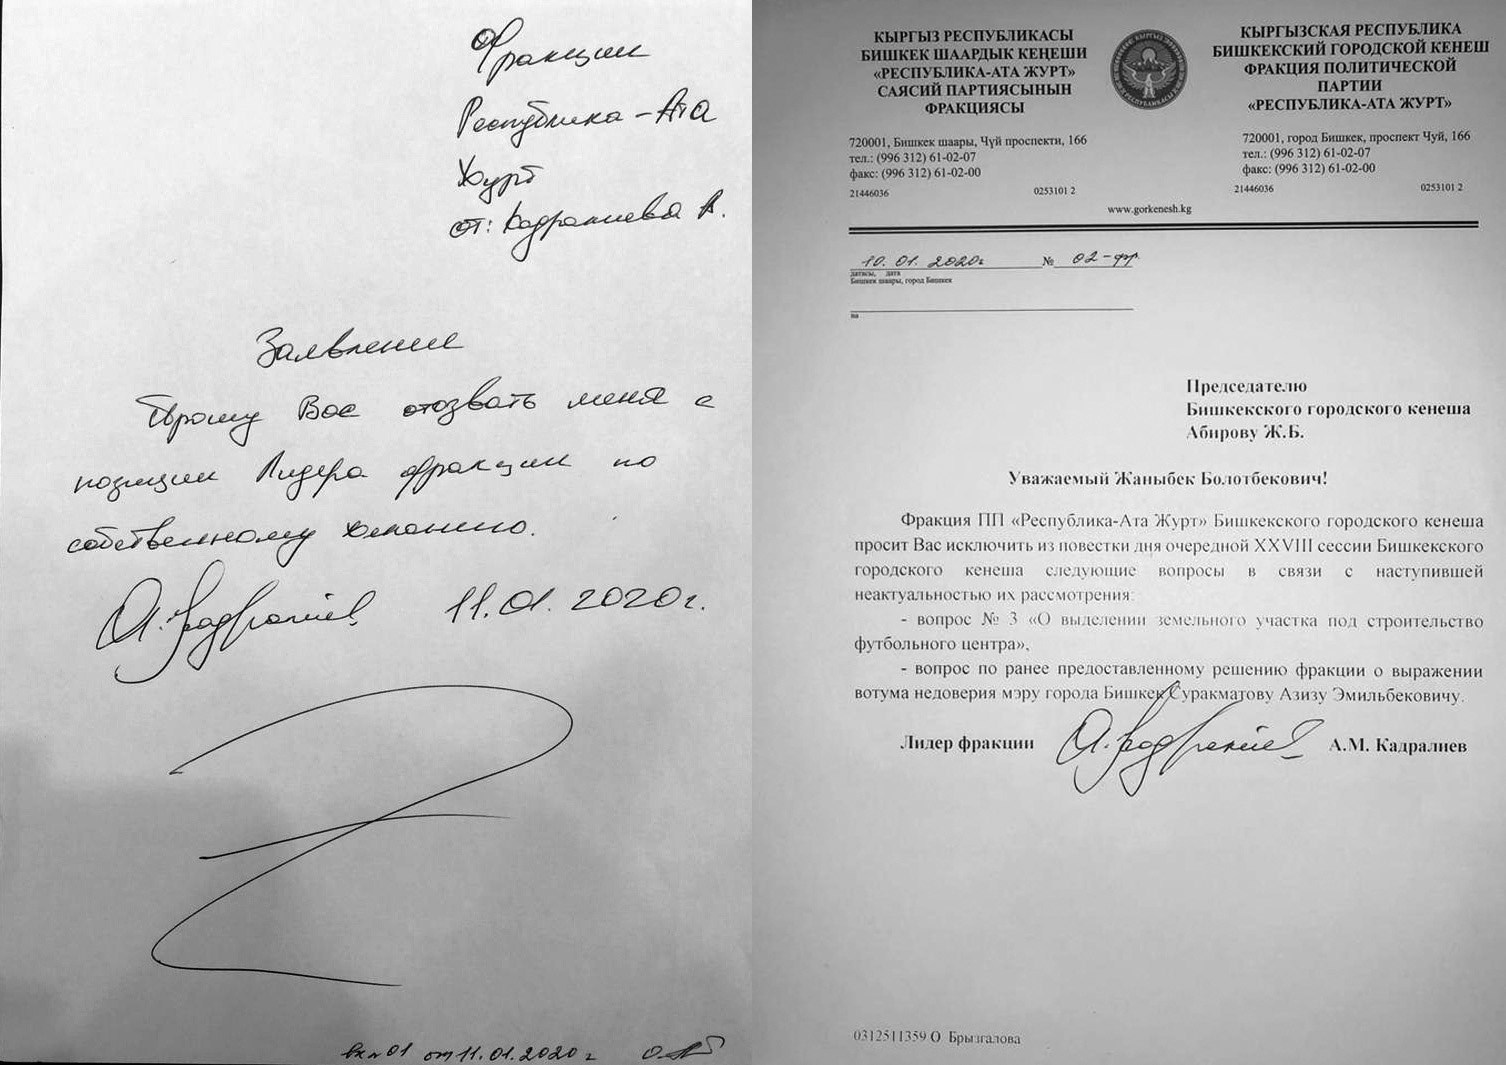 Фракции
Республика-Ата
Журт
от: Кадралиева А.
Заявление
Прошу Вас отозвать меня с
позиции Лидера фракции по
собственному желанию.
А. Кадралиев 11.01.2020г.
вх№01 от 11.01.2020г
КЫРГЫЗ РЕСПУБЛИКАСЫ
БИШКЕК ШААРДЫК КЕҢЕШИ
«РЕСПУБЛИКА-АТА ЖУРТ»
САЯСИЙ ПАРТИЯСЫНЫН
ФРАКЦИЯСЫ
КЫРГЫЗСКАЯ РЕСПУБЛИКА
БИШКЕКСКИЙ ГОРОДСКОЙ КЕНЕШ
ФРАКЦИЯ ПОЛИТИЧЕСКОЙ
ПАРТИИ
«РЕСПУБЛИКА-АТА ЖУРТ»
720001, Бишкек шаары, Чүй проспекти, 166
тел.: (996 312) 61-02-07
факс: (996 312) 61-02-00
21446036 0253101 2
720001, город Бишкек, проспект Чуй, 166
тел.: (996 312) 61-02-07
факс: (996 312) 61-02-00
21446036 0253101 2
www.gorkenesh.kg
10.01.2020г № 02-фр
датасы, дата
Бишкек шаары, город Бишкек
на
Председателю
Бишкекского городского кенеша
Абирову Ж.Б.
Уважаемый Жаныбек Болотбекович!
Фракция ПП «Республика-Ата Журт» Бишкекского городского кенеша
просит Вас исключить из повестки дня очередной XXVIII сессии Бишкекского
городского кенеша следующие вопросы в связи с наступившей
неактуальностью их рассмотрения:
- вопрос № 3 «О выделении земельного участка под строительство
футбольного центра»,
- вопрос по ранее предоставленному решению фракции о выражении
вотума недоверия мэру города Бишкек Суракматову Азизу Эмильбековичу.
Лидер фракции А. Кадралиев А.М. Кадралиев
0312511359 О Брызгалова